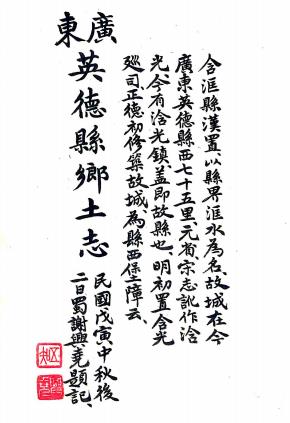 含洭縣漢置以縣界洭水為名、故城在今
廣東英德縣西七十五里、元省、宋志訛作浛
光、今有浛光鎮、蓋即故縣也、明初置含光
廵司、正德初修築故城、為縣西保障云、
廣東
英德縣鄉土志
民國戊寅中秋後
二日蜀謝興堯題記、